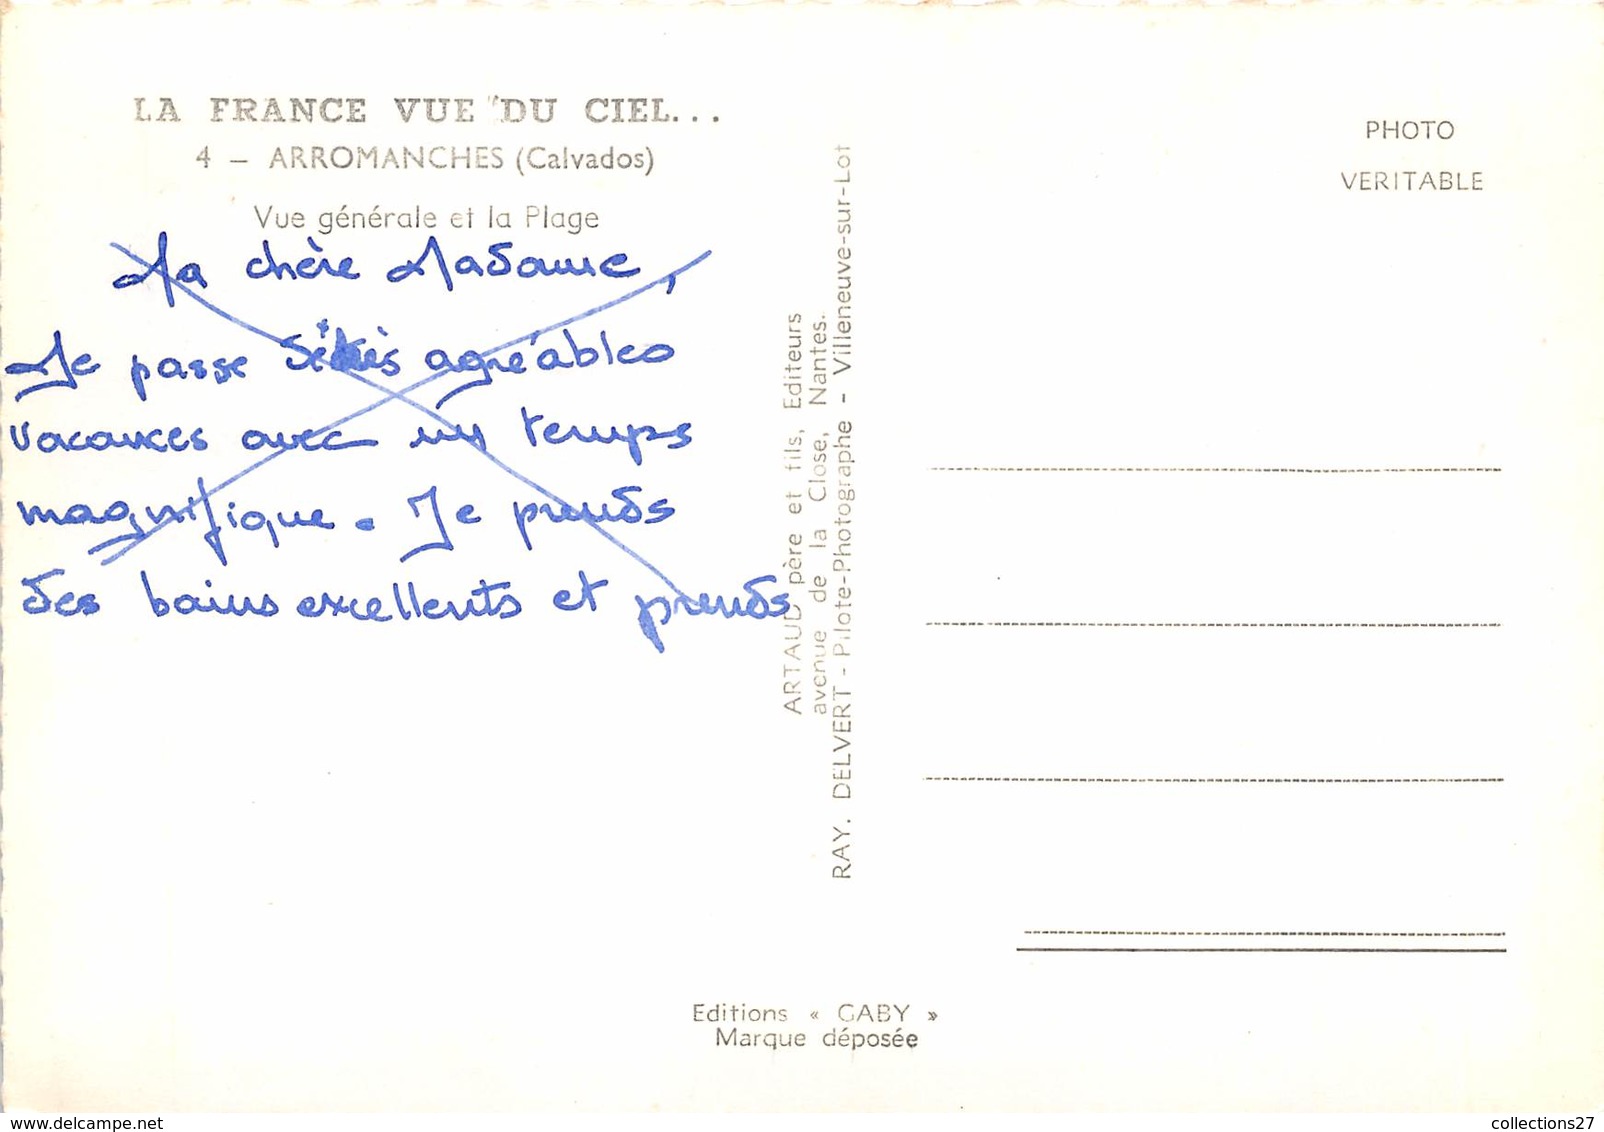 LA FRANCE VUE DU CIEL...
4 – ARROMANCHES (Calvados)
Vue générale et la Plage
Ma chère Madame,
Je passe agréables
vacances avec un temps
magnifique. Je prends
des bains excellents et prends
ARTAUD père et fils, Editeurs
avenue de la Close, Nantes.
RAY. DELVERT - Pilote-Photographe - Villeneuve-sur-Lot
PHOTO
VERITABLE
Editions « GABY »
Marque déposée
collections27